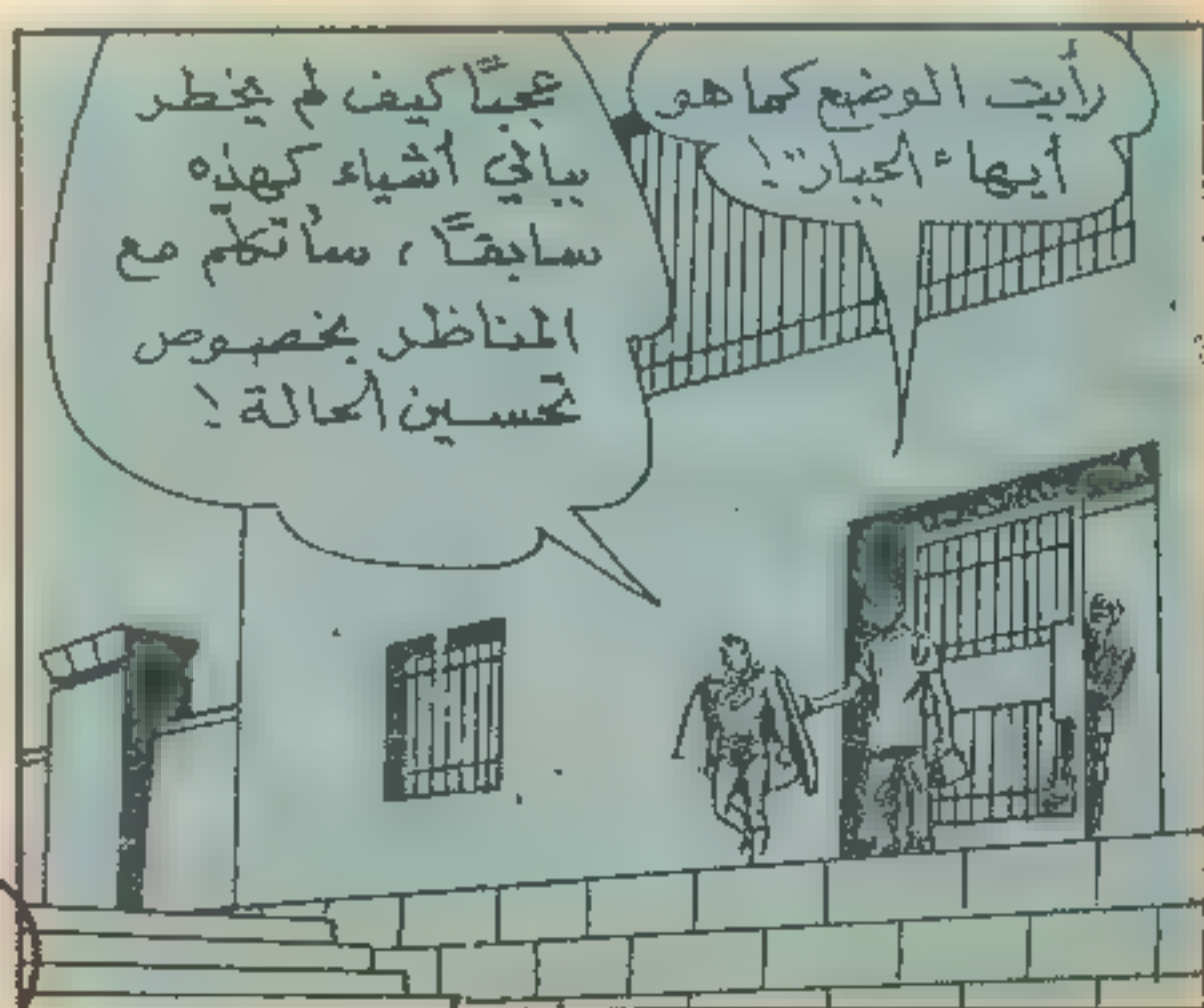 رأيت الوضع كما هو
أيها الجبار!
عجبًا كيف لم يخطر
ببالي أشياء كهذه
سابقًا، سأتكلم مع
المناظر بخصوص
تحسين الحالة!